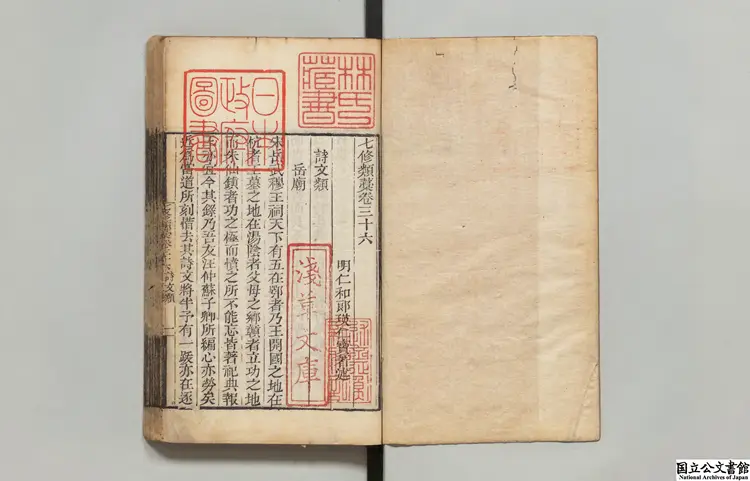 七修類藁卷三十六
明仁和郎瑛仁寶著述
詩文類
岳廟
宋岳武穆王祠天下有五在鄂者乃王開國之地在
杭者王墓之地在湯陰者父母之鄉贛者立功之地
而朱仙鎮者功之極而憤之所不能忘皆著祀典報
宜今其錄乃吾友汪仲蘇子卿所編心亦勞矣
近爲當道所刻惜去其詩文將半予有一跋亦在逐
林氏
藏書
日本
政府
圖書
淺草文庫
国立公文書館
National Archives of Japan